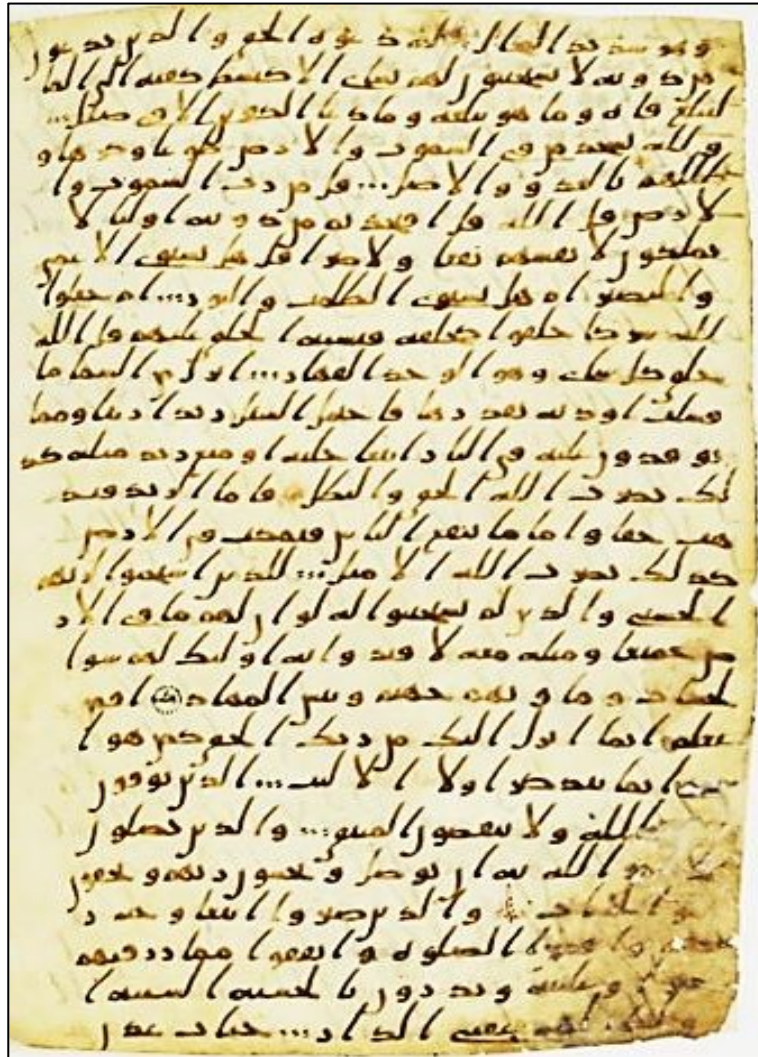 وهو شديد المحال له دعوه الحق والذين يدعون
من دونه لا يستجيبون لهم بشى الا كبسط كفيه الى الما
ليبلغ فاه وما هو ببلغه وما دعا الكفرين الا فى ضلل
ولله يسجد من فى السموت والارض طوعا وكرها و
ظللهم بالغدو والاصل قل من رب السموت وا
لارض قل الله قل افتخذتم من دونه اوليا لا
يملكون لانفسهم نفعا ولا ضرا قل هل يستوى الاعمى
والبصير ام هل تستوى الظلمت والنور ام جعلوا
لله شركا خلقوا كخلقه فتشبه الخلق عليهم قل الله
خلق كل شى وهو الوحد القهار انزل من السما ما
فسلت اوديه بقدرها فاحتمل السيل زبدا رابيا ومما
توقدون عليه فى النار ابتغا حليه او متع زبد مثله كذ
لك يضرب الله الحق والبطل فاما الزبد فيذ
هب جفا واما ما ينفع الناس فيمكث فى الارض
كذلك يضرب الله الامثل للذين استجبوا لربهم
الحسنى والذين لم يستجيبوا له لو ان لهم ما فى الار
ض جميعا ومثله معه لافتدوا به اوليك لهم سوا
لحساب وماويهم جهنم وبيس المهاد افمن
يعلم انما انزل اليك من ربك الحق كمن هو ا
عمى انما يتذكر اولوا الالبب الذين يوفون
الله ولا ينقضون الميثق والذين يصلون
الله به ان يوصل ويخشون ربهم ويخفون
الحساب والذين صبروا ابتغا وجه ر
بهم واقموا الصلوه وانفقوا مما رزقنهم
سرا وعلنيه ويدرون بالحسنه السيه ا
وليك لهم عقبى الدار جنت عدن